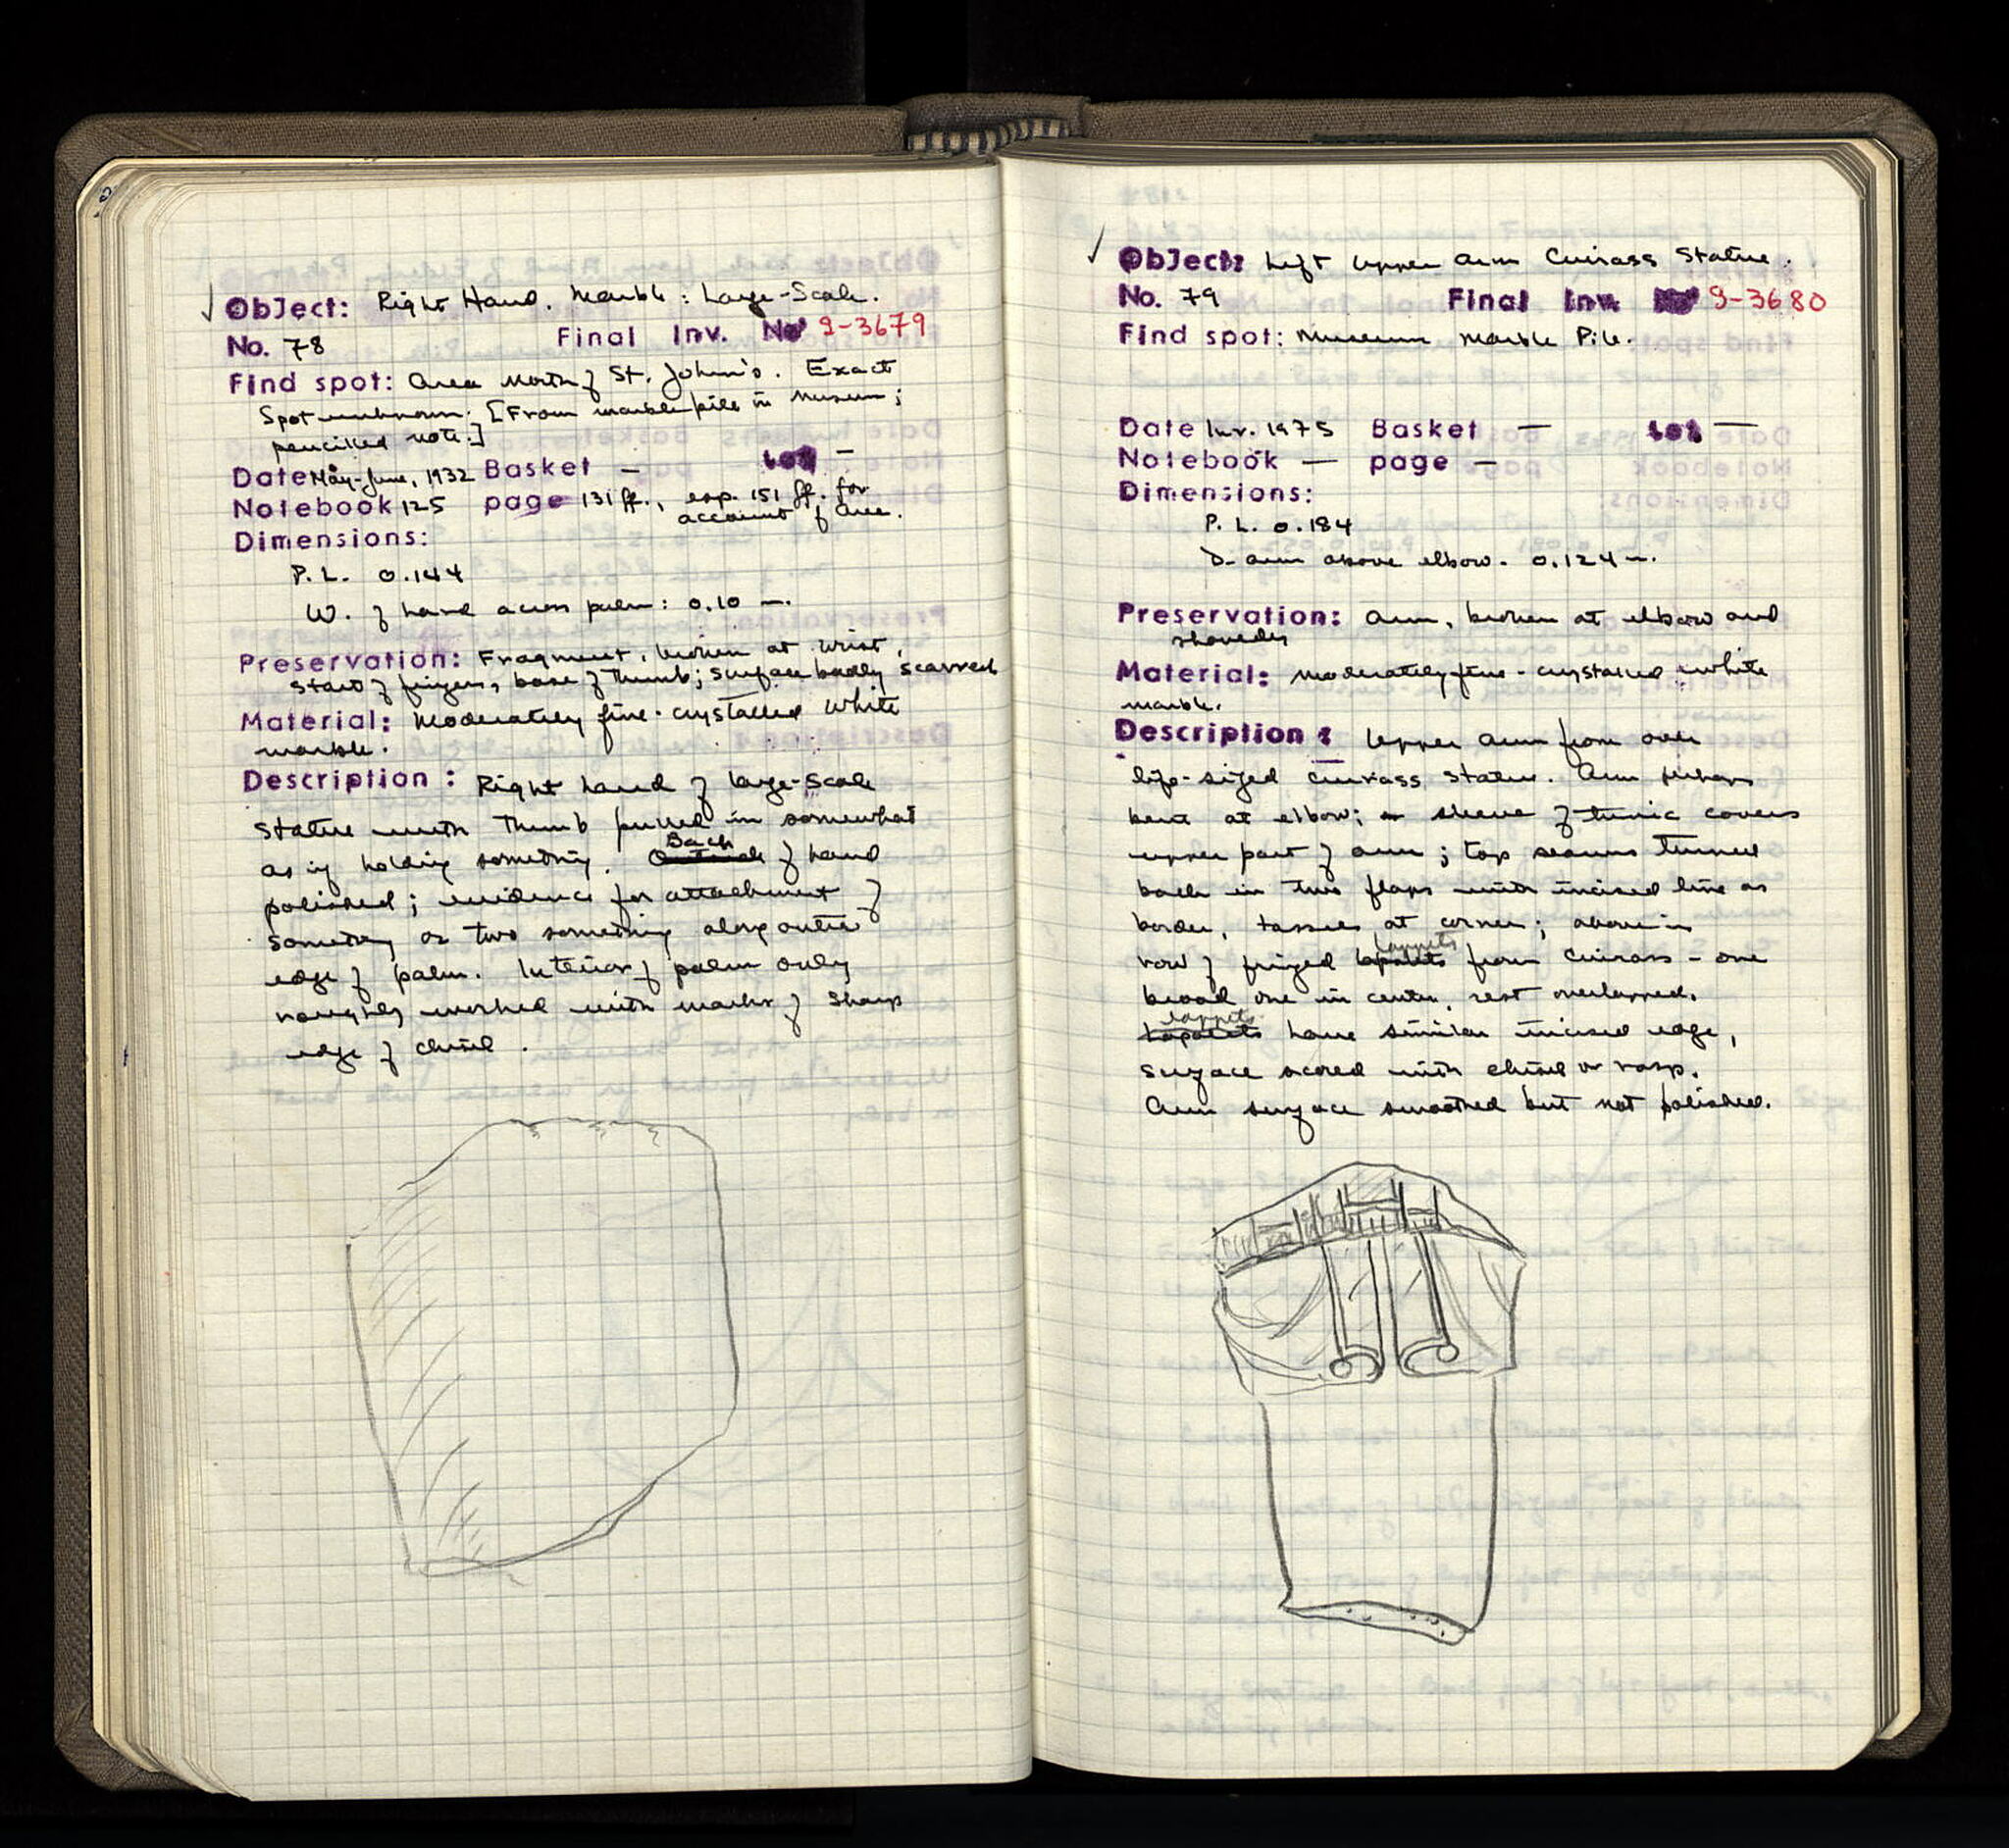 ✓ Object: Right Hand. Marble: Large-Scale.
No. 78 Final Inv. No S-3679
Find spot: Area North of St. John's. Exact
Spot unknown. [From marble pile in Museum;
pencilled note.]
Date May-June, 1932 Basket — Lot —
Notebook 125 page 131 ff., esp. 151 ff. for
account of area.
Dimensions:
P. L. 0.144
W. of hand across palm: 0.10 m.
Preservation: Fragment, broken at wrist,
start of fingers, base of thumb; surface badly scarred
Material: Moderately fine-crystalled white
marble.
Description: Right hand of large-scale
statue with thumb pulled in somewhat
as if holding something. Back of hand
polished; evidence for attachment of
something or two something along outer
edge of palm. Interior of palm only
roughly worked with marks of sharp
edge of chisel.
✓ Object: Left Upper Arm Cuirass Statue.
No. 79 Final Inv. No S-3680
Find spot: Museum Marble Pile.
Date Inv. 1975 Basket — Lot —
Notebook — page —
Dimensions:
P. L. 0.184
D. arm above elbow. 0.124 m.
Preservation: Arm, broken at elbow and
shoulder
Material: Moderately fine-crystalled white
marble.
Description: Upper arm from over
life-sized cuirass statue. Arm perhaps
bent at elbow; sleeve of tunic covers
upper part of arm; top seams turned
back in two flaps with incised line as
border, tassel at corner; above is
row of fringed lappets from cuirass - one
broad one in center, rest overlapped.
lappets have similar incised edge,
surface scored with chisel or rasp.
Arm surface smoothed but not polished.